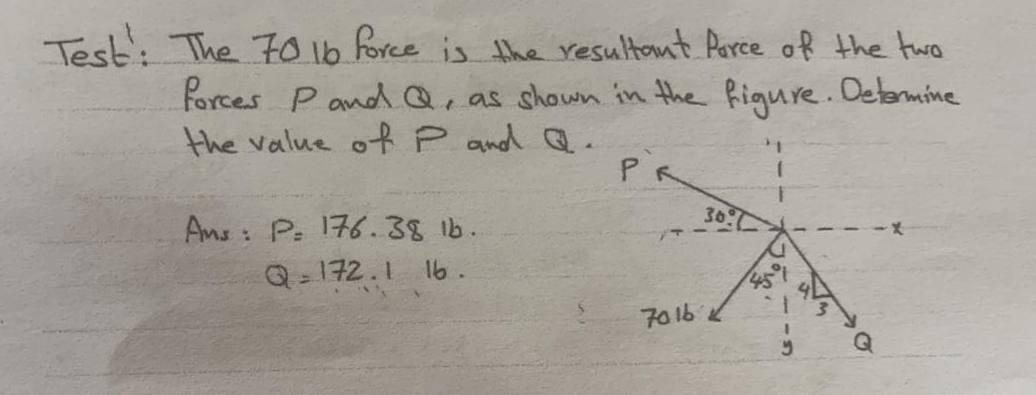 Test': The 70 lb force is the resultant force of the two
forces P and Q, as shown in the figure. Determine
the value of P and Q.
P
30°
x
Ans: P= 176.38 lb.
Q=172.1 lb.
45°
4
3
70 lb
y
Q